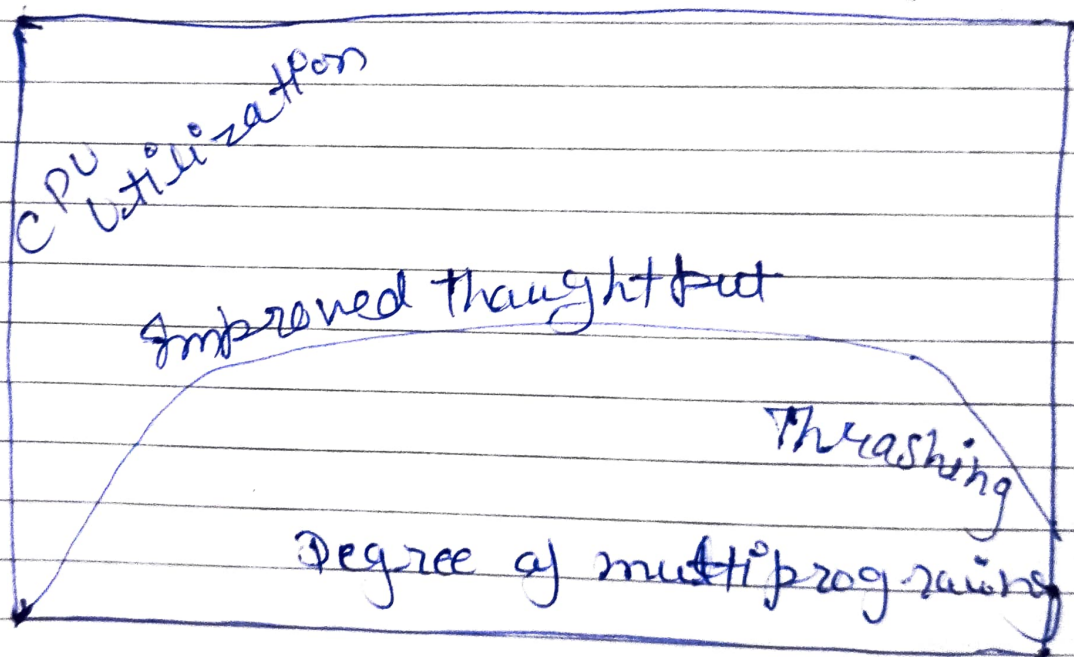 CPU
Utilization
Improved thaughtput
Thrashing
Degree of multiprograiing